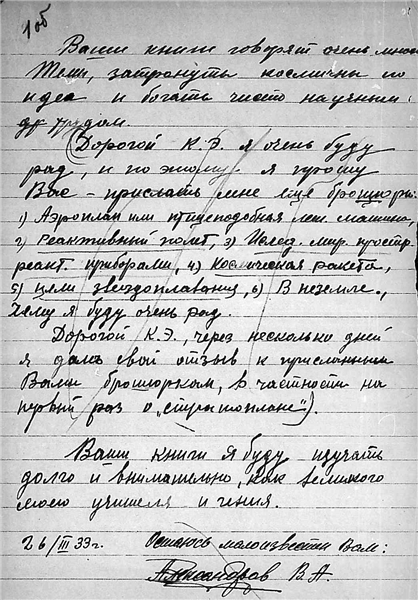 1об
Ваши книги говорят очень много
Темы, затронуты космичны по
идеа и богаты чисто научным
трудом.
(Дорогой К.Э. я очень буду
рад, и по этому я прошу
Вас – прислать мне еще брошюры:
1) Аэроплан или птицеподобная лет. машина,
2) Реактивный полет, 3) Исслед. мир. простр.
реакт. приборами, 4) Космическая ракета,
5) Цели звездоплавания, 6) Вне земле.,
Чему я буду очень рад.
Дорогой К.Э., через несколько дней
я дам свой отзыв к присланным
Вами брошюркам, в частности на
первый раз о „стратоплане“).
Ваши книги я буду изучать
долго и внимательно, как великого
моего учителя и гения.
26/III 33г. Остаюсь малоизвестен Вам:
Александров В.А.